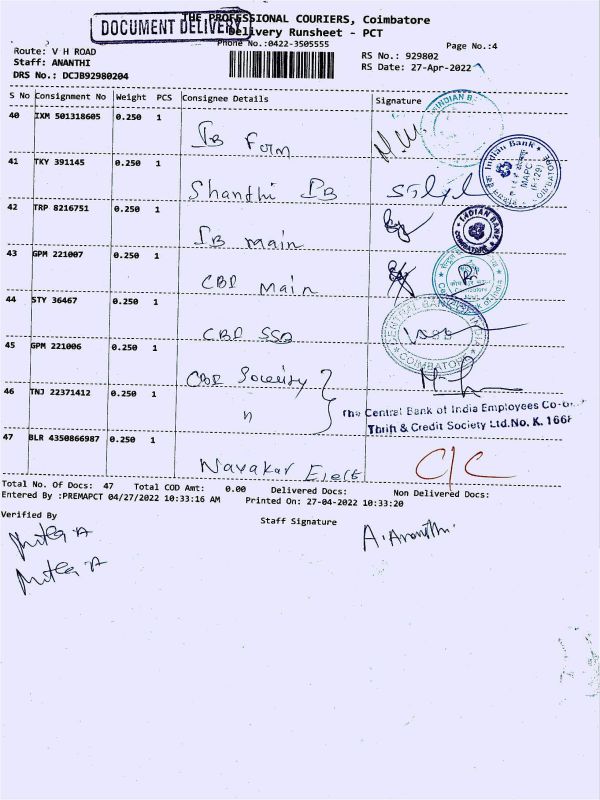 DOCUMENT DELIVERY
THE PROFESSIONAL COURIERS, Coimbatore
Delivery Runsheet - PCT
Phone No.:0422-3505555
Page No.:4
Route: V H ROAD
RS No.: 929802
Staff: ANANTHI
RS Date: 27-Apr-2022
DRS No.: DCJB92980204
S No Consignment No Weight PCS Consignee Details Signature
40 IXM 501318605 0.250 1
IB Form
INDIAN
41 TKY 391145 0.250 1
Shanthi IB
Indian Bank
MAPC
COIMBATORE
42 TRP 8216751 0.250 1
IB main
INDIAN BANK
COIMBATORE
43 GPM 221007 0.250 1
CBI Main
44 STY 36467 0.250 1
CBI
CENTRAL BANK OF INDIA
COIMBATORE
45 GPM 221006 0.250 1
CBI Society
46 TNJ 22371412 0.250 1
"
The Central Bank of India Employees Co-
Thrift & Credit Society Ltd. No. K.
47 BLR 4350866987 0.250 1
Nayakar Elect
C/C
Total No. Of Docs: 47 Total COD Amt: 0.00 Delivered Docs: Non Delivered Docs:
Entered By :PREMAPCT 04/27/2022 10:33:16 AM Printed On: 27-04-2022 10:33:20
Verified By
Staff Signature
A. Ananthi